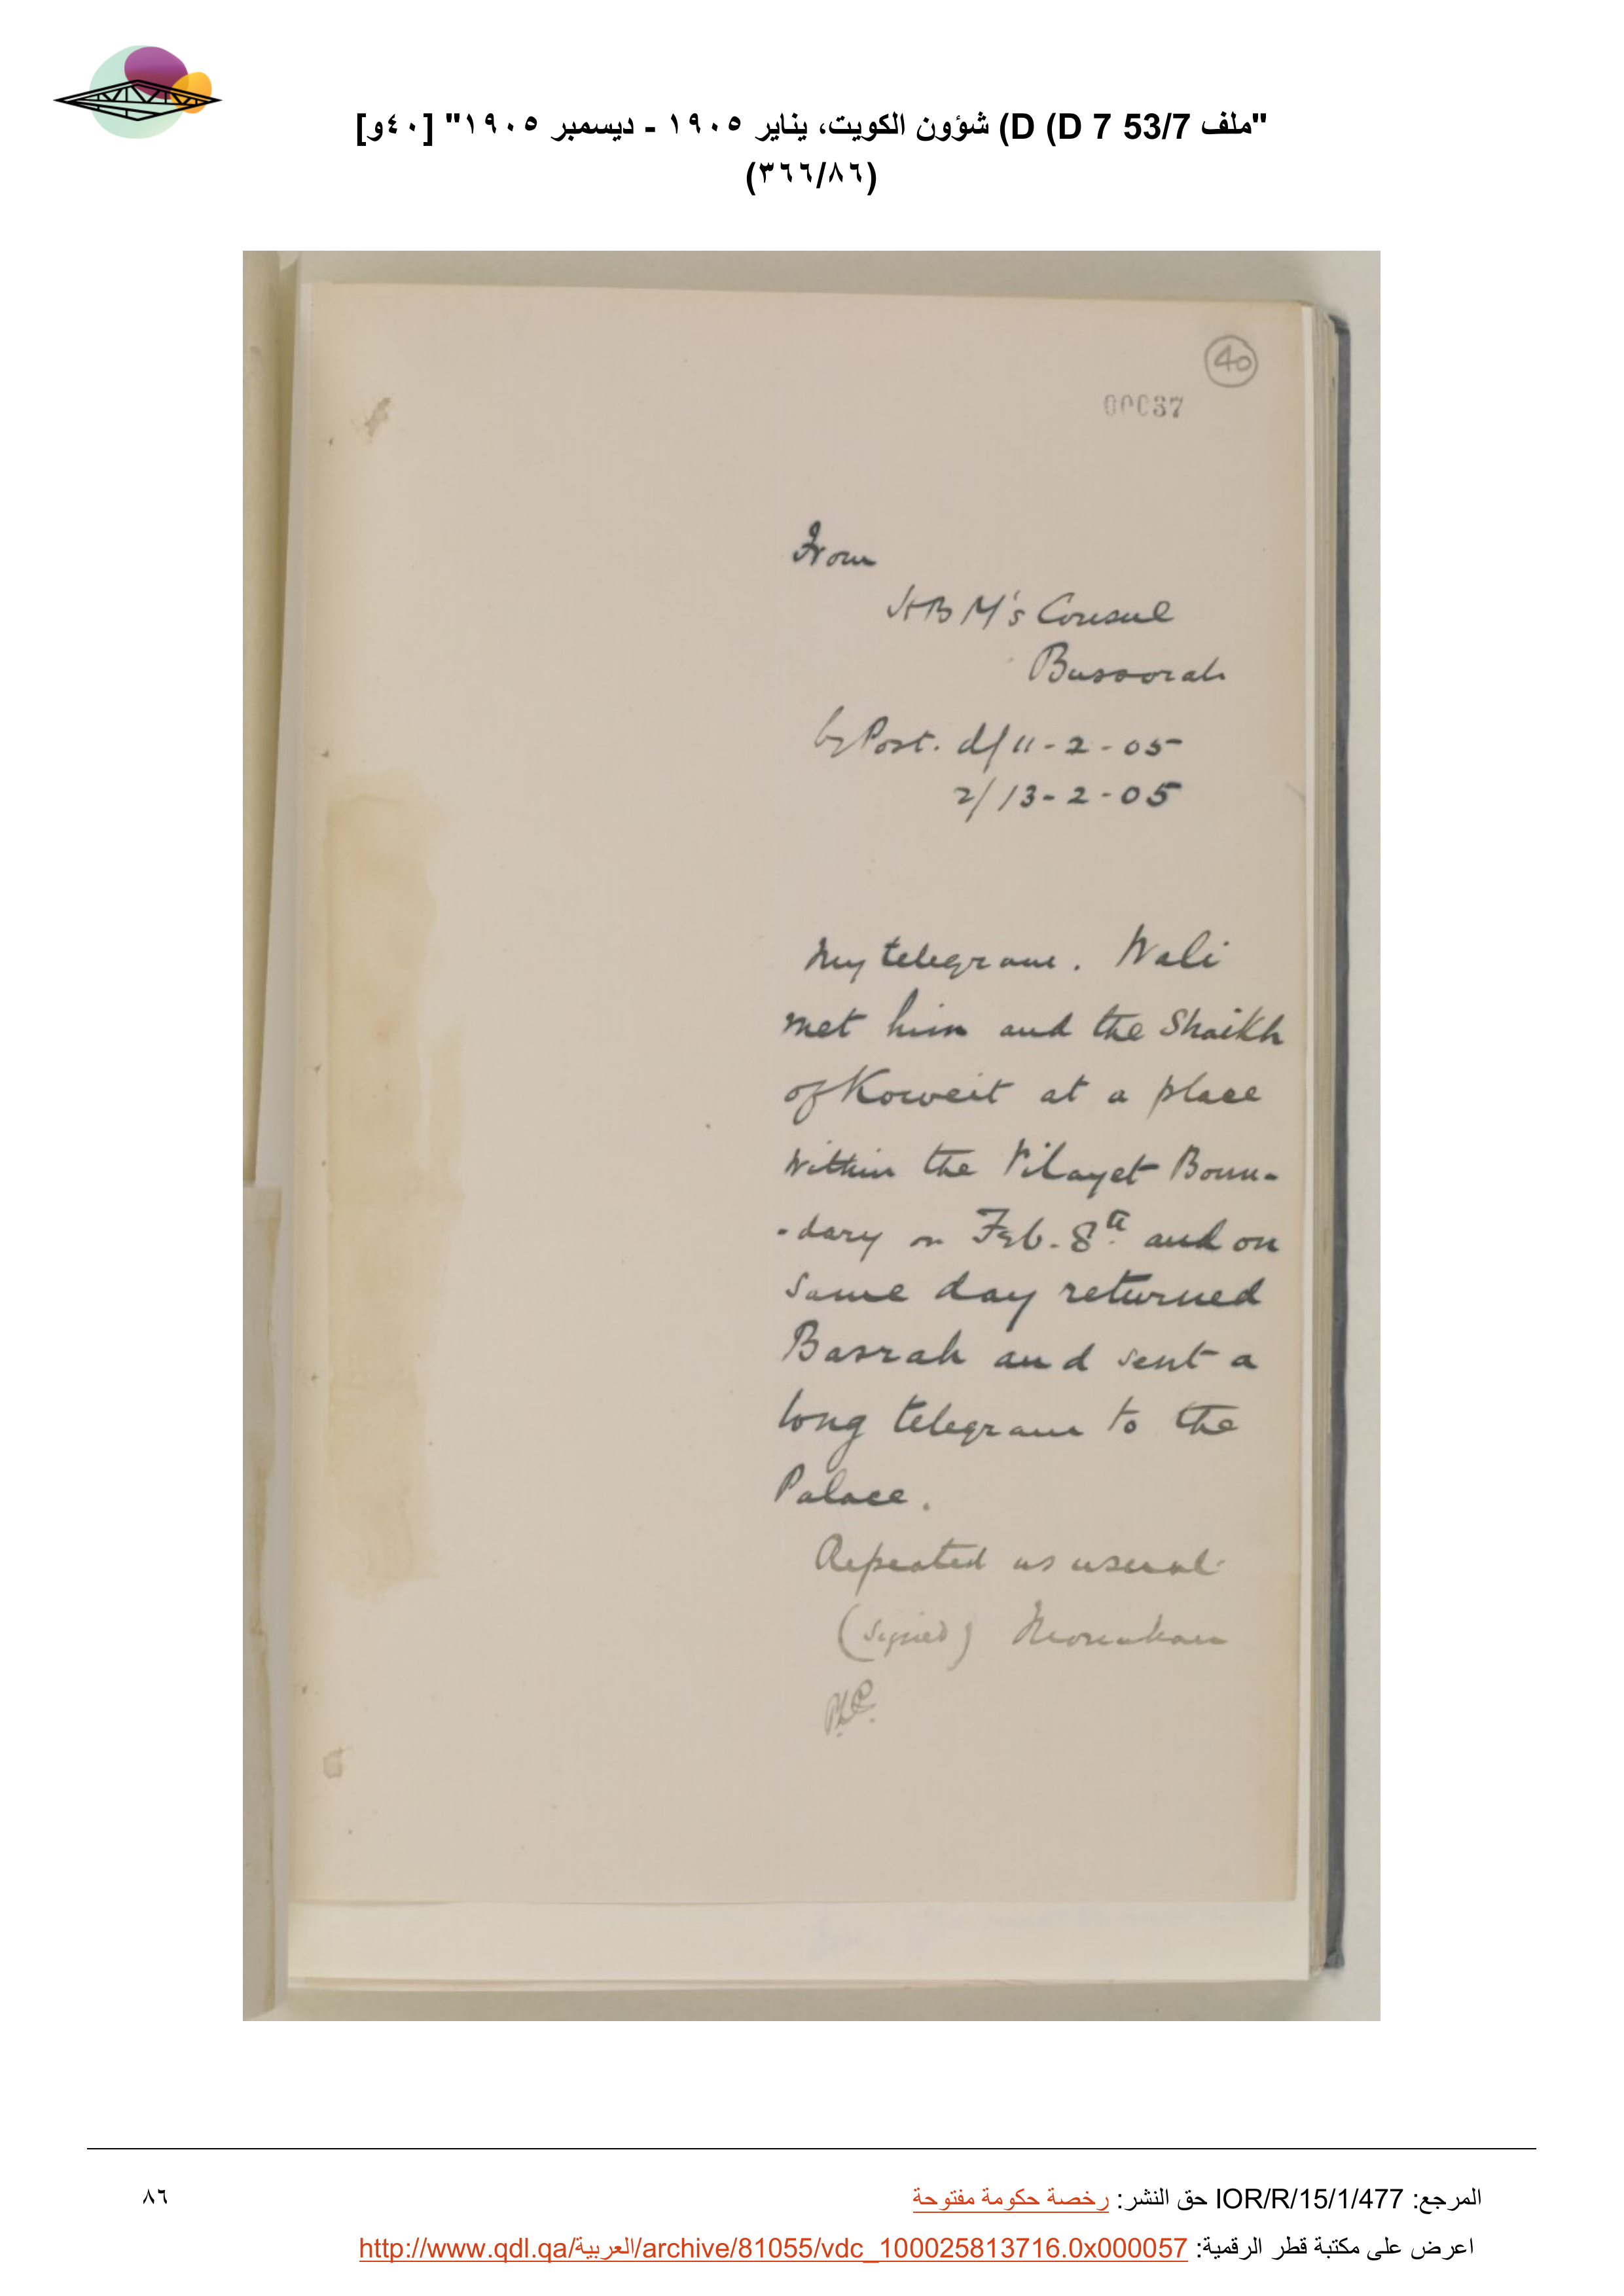 "ملف 53/7 D (D 7) شؤون الكويت، يناير ١٩٠٥ - ديسمبر ١٩٠٥" [٤٠و]
(٣٦٦/٨٦)
40
00037
From
HBM's Consul
Bussorah
by Post. d/ 11-2-05
2/ 13-2-05
My telegram. Wali
met him and the Shaikh
of Koweit at a place
within the Vilayet Boun-
-dary on Feb. 8th and on
same day returned
Basrah and sent a
long telegram to the
Palace.
Repeated as usual
(signed)
المرجع: IOR/R/15/1/477 حق النشر: رخصة حكومة مفتوحة
٨٦
اعرض على مكتبة قطر الرقمية: http://www.qdl.qa/العربية/archive/81055/vdc_100025813716.0x000057